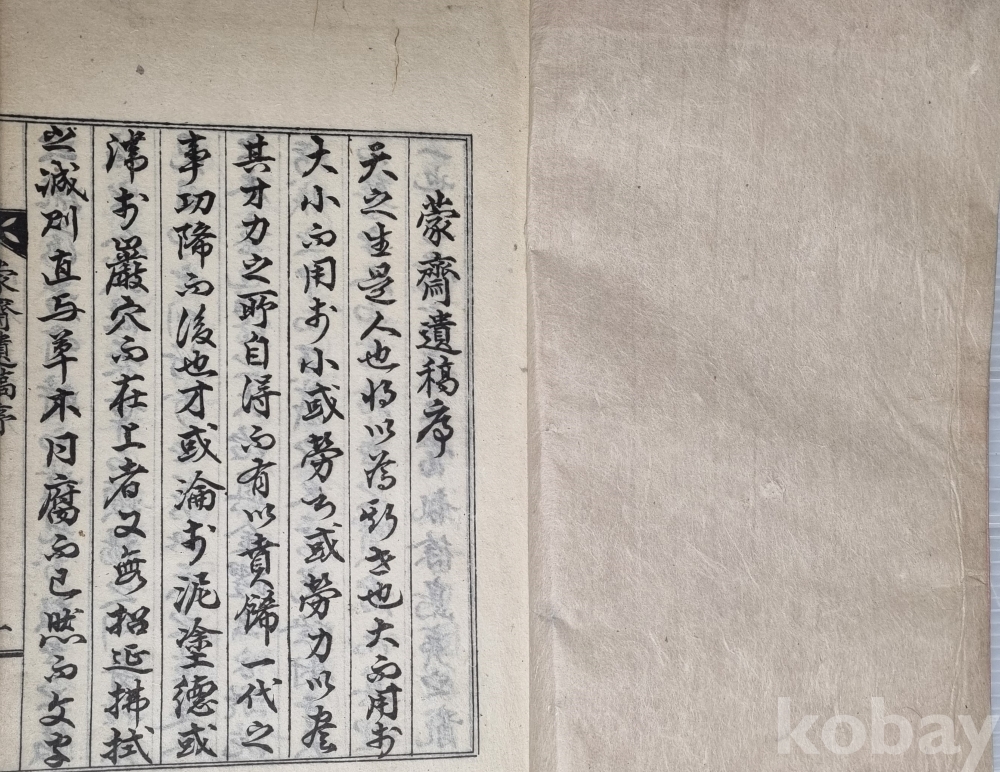 蒙齋遺稿序
天之生是人也將以為斯世也大而用於
大小而用於小或勞心或勞力以盡
其才力之所自得而有以賁餙一代之
事功降而後也才或淪於泥塗德或
滯於巖穴而在上者又無招延拂拭
之誠則直与草木同腐而已然而文字
蒙齋遺稿序
一
kobay